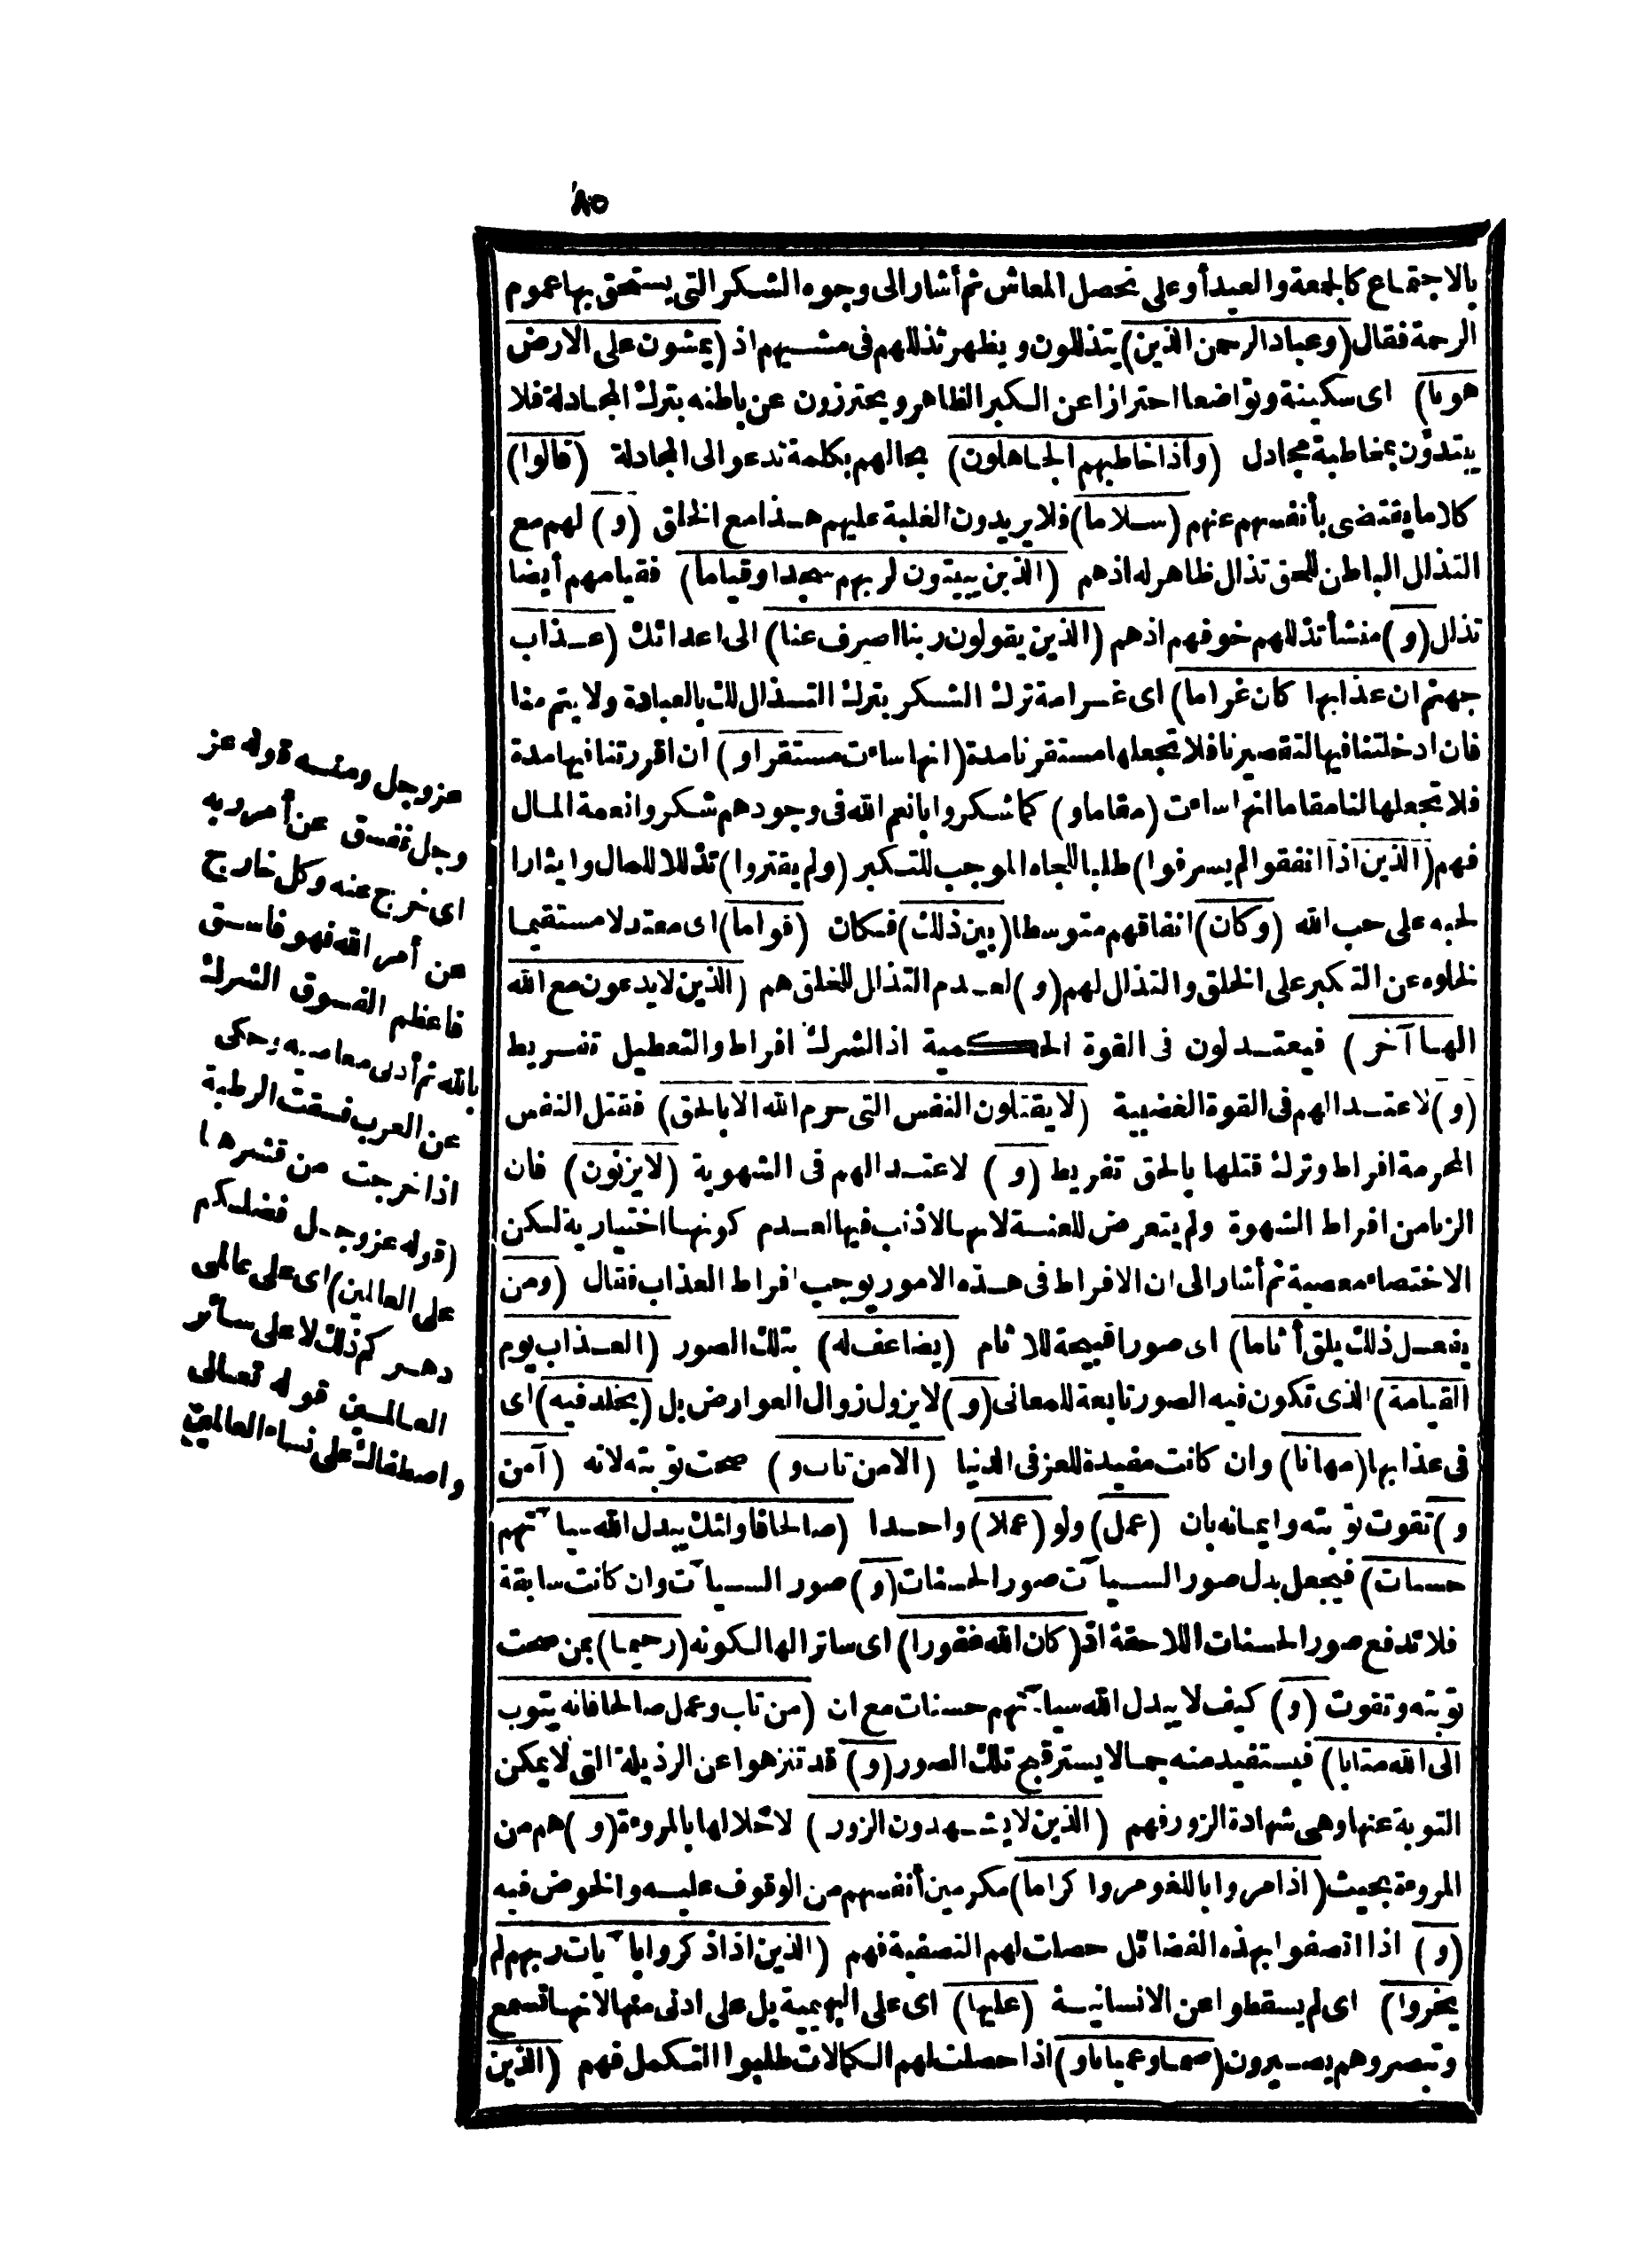 ٨٥
بالاجتماع كالجمعة والعيد أو على تحصل المعاش ثم أشار الى وجوه الشكر التى يستحق بها عموم
الرحمة فقال (وعباد الرحمن الذين) يتذللون ويظهر تذللهم فى مشيهم اذ (يمشون على الارض
هونا) اى سكينة وتواضعا احترازا عن الكبر الظاهر ويحترزون عن باطنه بترك المجادلة فلا
يبتدؤن بمخاطبة مجادل (واذا خاطبهم الجاهلون) بجالهم بكلمة تدعو الى المجادلة (قالوا)
كلاما يقتضى بأنفسهم عنهم (سلاما) فلا يريدون الغلبة عليهم هذا مع الخلق (و) لهم مع
التذلل الباطن للحق تذلل ظاهر له اذ هم (الذين يبيتون لربهم سجدا وقياما) فقيامهم أيضا
تذلل (و) منشأ تذللهم خوفهم اذ هم (الذين يقولون ربنا اصرف عنا) الى اعدائك (عذاب
جهنم ان عذابها كان غراما) اى غرامة ترك الشكر بترك التذلل لك بالعبادة ولا يتم منا
فان ادخلتنا فيها لتقصيرنا فلا تجعلها مستقرنا مدة (انها ساءت مستقرا و) ان اقررتنا فيها مدة
فلا تجعلها لنا مقاما انها ساءت (مقاما و) كما شكروا بانعم الله فى وجودهم شكروا نعمة المال
فهم (الذين اذا انفقوا لم يسرفوا) طلبا للجاه الموجب للتكبر (ولم يقتروا) تذللا للمال وايثارا
لحبه على حب الله (وكان) انفاقهم متوسطا (بين ذلك) فكان (قواما) اى معتدلا مستقيما
لخلوه عن التكبر على الخلق والتذلل لهم (و) لعدم التذلل للخلق هم (الذين لا يدعون مع الله
الها آخر) فيعتدلون فى القوة الحكمية اذ الشرك افراط والتعطيل تفريط
(و) لاعتدالهم فى القوة الغضبية (لا يقتلون النفس التى حرم الله الا بالحق) فقتل النفس
المحرمة افراط وترك قتلها بالحق تفريط (و) لاعتدالهم فى الشهوية (لا يزنون) فان
الزنا من افراط الشهوة ولم يتعرض للعنة لانها لا ذنب فيها لعدم كونها اختيارية لكن
الاختصاء معصية ثم أشار الى ان الافراط فى هذه الامور يوجب افراط العذاب فقال (ومن
يفعل ذلك يلق أثاما) اى صورا قبيحة للاثام (يضاعف له) بتلك الصور (العذاب يوم
القيامة) الذى تكون فيه الصور تابعة للمعانى (و) لا يزول زوال العوارض بل (يخلد فيه) اى
فى عذابها (مهانا) وان كانت مفيدة للعز فى الدنيا (الا من تاب و) صحت توبته لانه (آمن
و) تقوت توبته وايمانه بان (عمل) ولو (عملا) واحدا (صالحا فاولئك يبدل الله سيآتهم
حسنات) فيجعل بدل صور السيآت صور الحسنات (و) صور السيآت وان كانت سابقة
فلا تدفع صور الحسنات اللاحقة اذ (كان الله غفورا) اى ساترا لها لكونه (رحيما) بمن صحت
توبته وتقوت (و) كيف لا يبدل الله سيآتهم حسنات مع ان (من تاب وعمل صالحا فانه يتوب
الى الله متابا) فيستفيد منه جمالا يستر قبح تلك الصور (و) قد تنزهوا عن الرذيلة التى لا يمكن
التوبة عنها وهى شهادة الزور فهم (الذين لا يشهدون الزور) لاخلالها بالمروءة (و) هم من
المروءة بحيث (اذا مروا باللغو مروا كراما) مكرمين أنفسهم من الوقوف عليه والخوض فيه
(و) اذا اتصفوا بهذه الفضائل حصلت لهم التصفية فهم (الذين اذا ذكروا بآيات ربهم لم
يخروا) اى لم يسقطوا عن الانسانية (عليها) اى على البهيمية بل على ادنى منها لانها تسمع
وتبصر وهم يصيرون (صما وعميانا و) اذا حصلت لهم الكمالات طلبوا التكمل فهم (الذين
عز وجل ومنه قوله عز
وجل ففسق عن أمر ربه
اى خرج عنه وكل خارج
عن أمر الله فهو فاسق
فاعظم الفسوق الشرك
بالله ثم أدنى معاصيه وحكى
عن العرب فسقت الرطبة
اذا خرجت من قشرها
(قوله عز وجل فضلكم
على العالمين) اى على عالمى
دهركم ذلك لا على سائر
العالمين قوله تعالى
واصطفاك على نساء العالمين